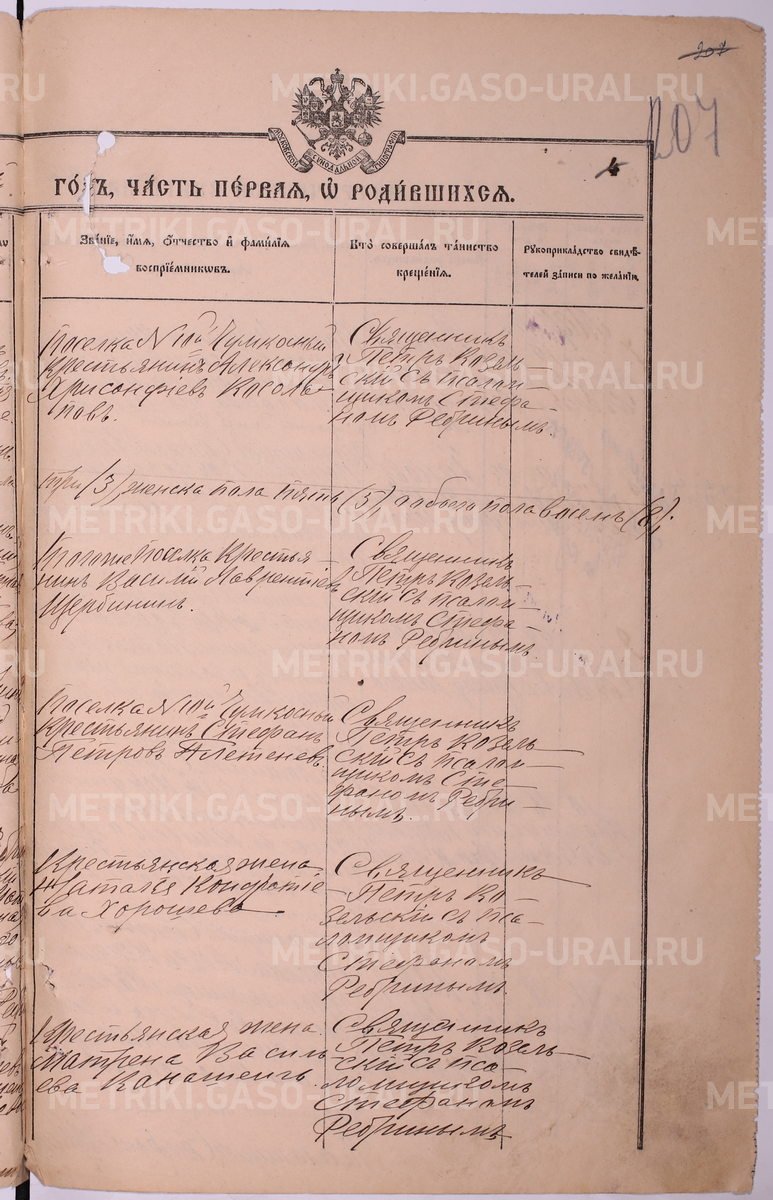 207
207
4
МОСКОВСКОЙ СѴНОДАЛЬНОЙ ТѴПОГРАФІИ
ГО́ДЪ, ЧА́СТЬ ПЕ́РВАЯ, Ѡ҆ РОДИ́ВШИХСЯ.
Зва́ніе, и҆́мя, ѻ҆́тчество и҆ фами́лія
воспріе́мниковъ.
Кто̀ соверша́лъ та́инство
креще́нія.
Рꙋкоприкла́дство свидѣ́-
телей за́писи по жела́нію.
Поселка №10й Чумкосный
крестьянинъ Александръ
Хрисонфіев Косола-
повъ.
Священникъ
Петръ Козель-
скій съ псалом-
щикомъ Стефа-
номъ Ребринымъ.
три (3) женска пола пять (5) а обоего пола восемь (8).
Того же поселка кресті-
янинъ Василій Лаврентіев
Щербининъ.
Священникъ
Петръ Козель-
скій съ псалом-
щикомъ Стефа-
номъ Ребринымъ.
Поселка №10й Чумкосный
крестьянинъ Стефанъ
Петровъ Плетеневъ.
Священникъ
Петръ Козель-
скій съ псалом-
щикомъ Сте-
фаномъ Ребри-
нымъ.
Крестьянская жена
Наталья Кондратіе-
ва Хорошева.
Священникъ
Петръ Ко-
зельскій съ пса-
ломщикомъ
Стефаномъ
Ребринымъ
Крестьянская жена
Матрена Василь-
ева
Священникъ
Петръ Козель-
скій съ пса-
ломщикомъ
Стефаномъ
Ребринымъ
METRIKI.GASO-URAL.RU